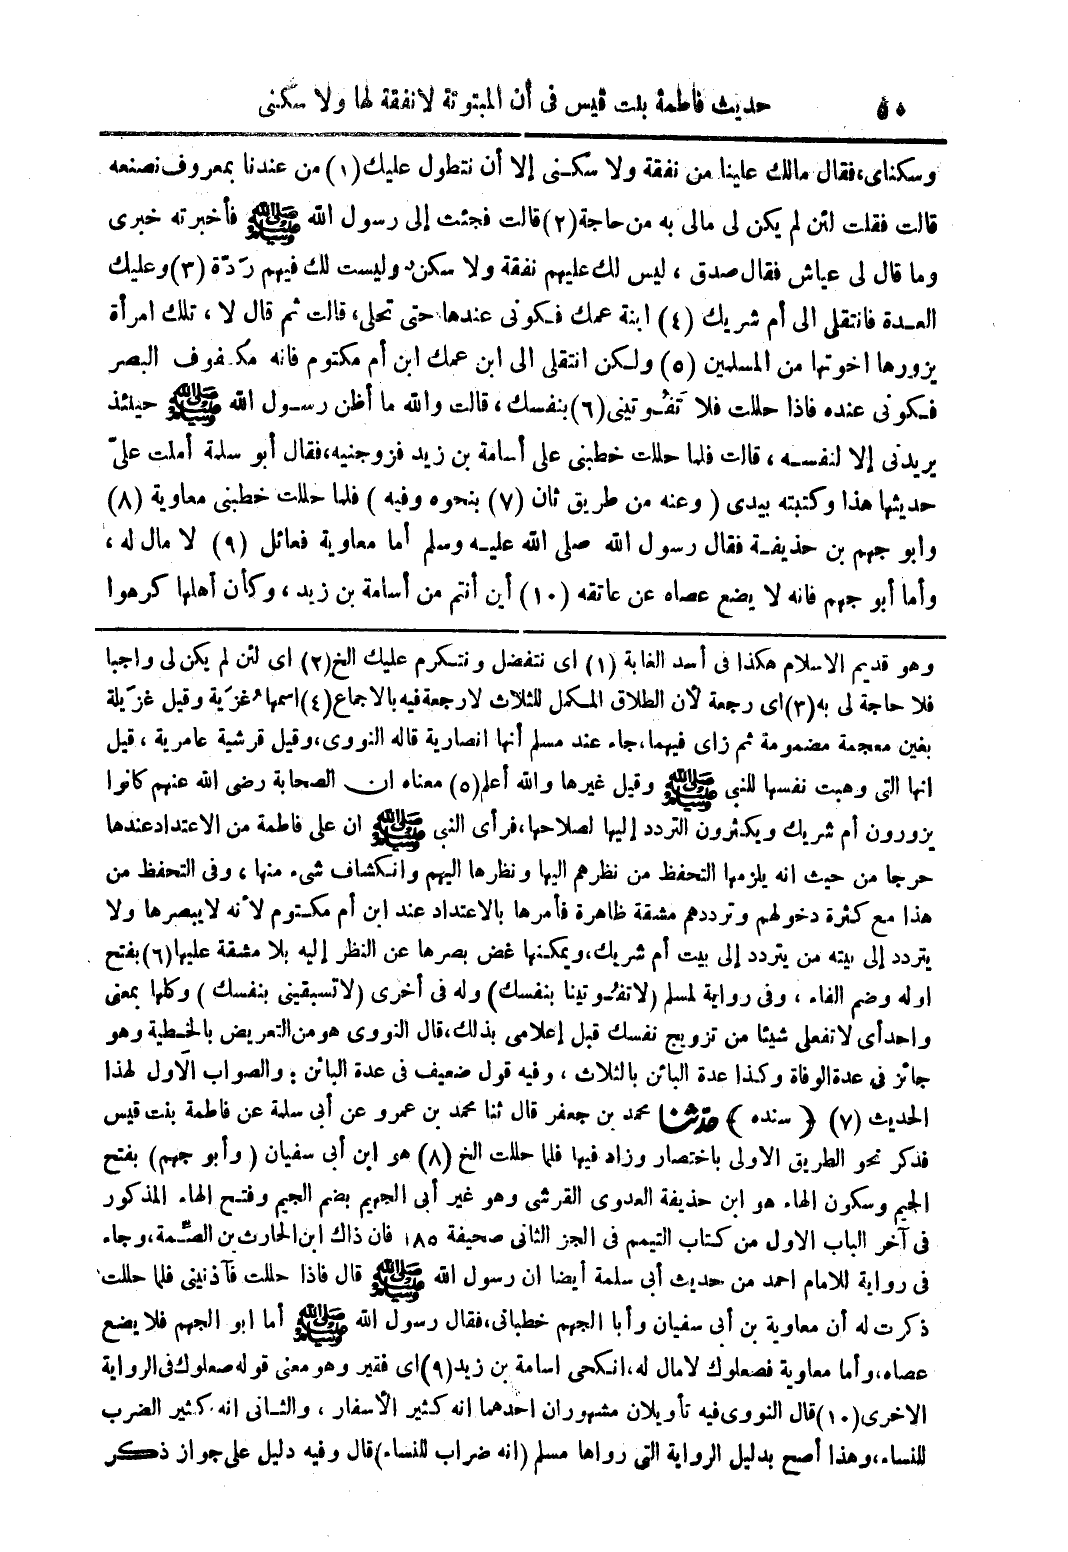 ٥٠ حديث فاطمة بنت قيس فى أن المبتوتة لا نفقة لها ولا سكنى
وسكناى،فقال مالك علينا من نفقة ولا سكـنى إلا أن نتطول عليك(١) من عندنا بمعروف نصنعه
قالت فقلت لئن لم يكن لى مالى به من حاجة(٢)قالت فجئت إلى رسول الله ﷺ فأخبرته خبرى
وما قال لى عياش فقال صدق ، ليس لك عليهم نفقة ولا سكنى وليست لك فيهم ردّة (٣)وعليك
العـدة فانتقلى الى أم شريك (٤) ابنة عمك فـكونى عندها حتى تحلى، قالت ثم قال لا ، تلك امرأة
يزورها اخوتها من المسلمين (٥) ولـكن انتقلى الى ابن عمك ابن أم مكتوم فانه مكـفوف البصر
فـكونى عنده فاذا حللت فلا تَفُـوتينى(٦)بنفسك ، قالت والله ما أظن رسـول الله ﷺ حينئذ
يريدنى إلا لنفسـه ، قالت فلما حللت خطبنى على أسامة بن زيد فزوجنيه،فقال أبو سلمة أملت علىّ
حديثها هذا وكتبته بيدى ( وعنه من طريق ثان (٧) بنحوه وفيه ) فلما حللت خطبنى معاوية (٨)
وابو جهم بن حذيفـة فقال رسول الله صلى الله عليـه وسلم أما معاوية فعائل (٩) لا مال له ،
وأما أبو جهم فانه لا يضع عصاه عن عاتقه (١٠) أين أنتم من أسامة بن زيد ، وكأن أهلها كرهوا
وهو قديم الاسلام هكذا فى أسد الغابة (١) اى نتفضل ونتـكرم عليك الخ(٢) اى لئن لم يكن لى واجبا
فلا حاجة لى به(٣)اى رجعة لأن الطلاق المـكمل للثلاث لا رجعة فيه بالاجماع(٤)اسمها غُزَية وقيل غزَيلة
بغين معجمة مضمومة ثم زاى فيهما،جاء عند مسلم أنها انصارية قاله النووى،وقيل قرشية عامرية ، قيل
انها التى وهبت نفسها للنبى ﷺ وقيل غيرها والله أعلم(٥) معناه ان الصحابة رضى الله عنهم كانوا
يزورون أم شريك ويكـثرون التردد إليها لصلاحها،فرأى النبى ﷺ ان على فاطمة من الاعتداد عندها
حرجا من حيث انه يلزمها التحفظ من نظرهم اليها ونظرها اليهم وانـكشاف شىء منها ، وفى التحفظ من
هذا مع كثرة دخولهم وترددهم مشقة ظاهرة فأمرها بالاعتداد عند ابن أم مكـتوم لأنه لايبصرها ولا
يتردد إلى بيته من يتردد إلى بيت أم شريك،ويمكـنها غض بصرها عن النظر إليه بلا مشقة عليها(٦)بفتح
اوله وضم الفاء ، وفى رواية لمسلم (لاتفُـوتينا بنفسك) وله فى أخرى (لاتسبقينى بنفسك ) وكلها بمعنى
واحدأى لاتفعلى شيئا من تزويج نفسك قبل إعلامى بذلك،قال النووى هو من التعريض بالخطبة وهو
جائز فى عدة الوفاة وكـذا عدة البائن بالثلاث ، وفيه قول ضعيف فى عدة البائن : والصواب الأول لهذا
الحديث (٧) ﴿ سنده ﴾ حدّثنا محمد بن جعفر قال ثنا محمد بن عمرو عن أبى سلمة عن فاطمة بنت قيس
فذكر نحو الطريق الاولى باختصار وزاد فيها فلما حللت الخ (٨) هو ابن أبى سفيان ( وأبو جهم) بفتح
الجيم وسكون الهاء هو ابن حذيفة العدوى القرشى وهو غير أبى الجهيم بضم الجيم وفتـح الهاء المذكور
فى آخر الباب الاول من كتاب التيمم فى الجز الثانى صحيفة ١٨٥ فان ذاك ابن الحارث بن الصِّمة،وجاء
فى رواية للامام احمد من حديث أبى سلمة أيضا ان رسول الله ﷺ قال فاذا حللت فآذنينى فلما حللت
ذكرت له أن معاوية بن أبى سفيان وأبا الجهم خطبانى،فقال رسول الله ﷺ أما ابو الجهم فلا يضع
عصاه،وأما معاوية فصعلوك لامال له،انـكحى اسامة بن زيد(٩)اى فقير وهو معنى قوله صعلوك فى الرواية
الاخرى(١٠)قال النووى فيه تأويلان مشهوران احدهما انه كثير الأسفار ، والثـانى انه كثير الضرب
للنساء،وهذا أصح بدليل الرواية التى رواها مسلم (انه ضراب للنساء)قال وفيه دليل على جواز ذكر